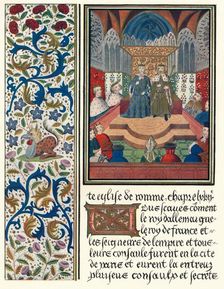 te eglise de romme. chapr̃e lxiiij
Nous scauez coment
le roy dallemaigne
le roy de france et
les seigneurs de lempire et tous
leurs consaulx furent en la cite
de et eurent la entreulx
plusieurs consaulx et secretz